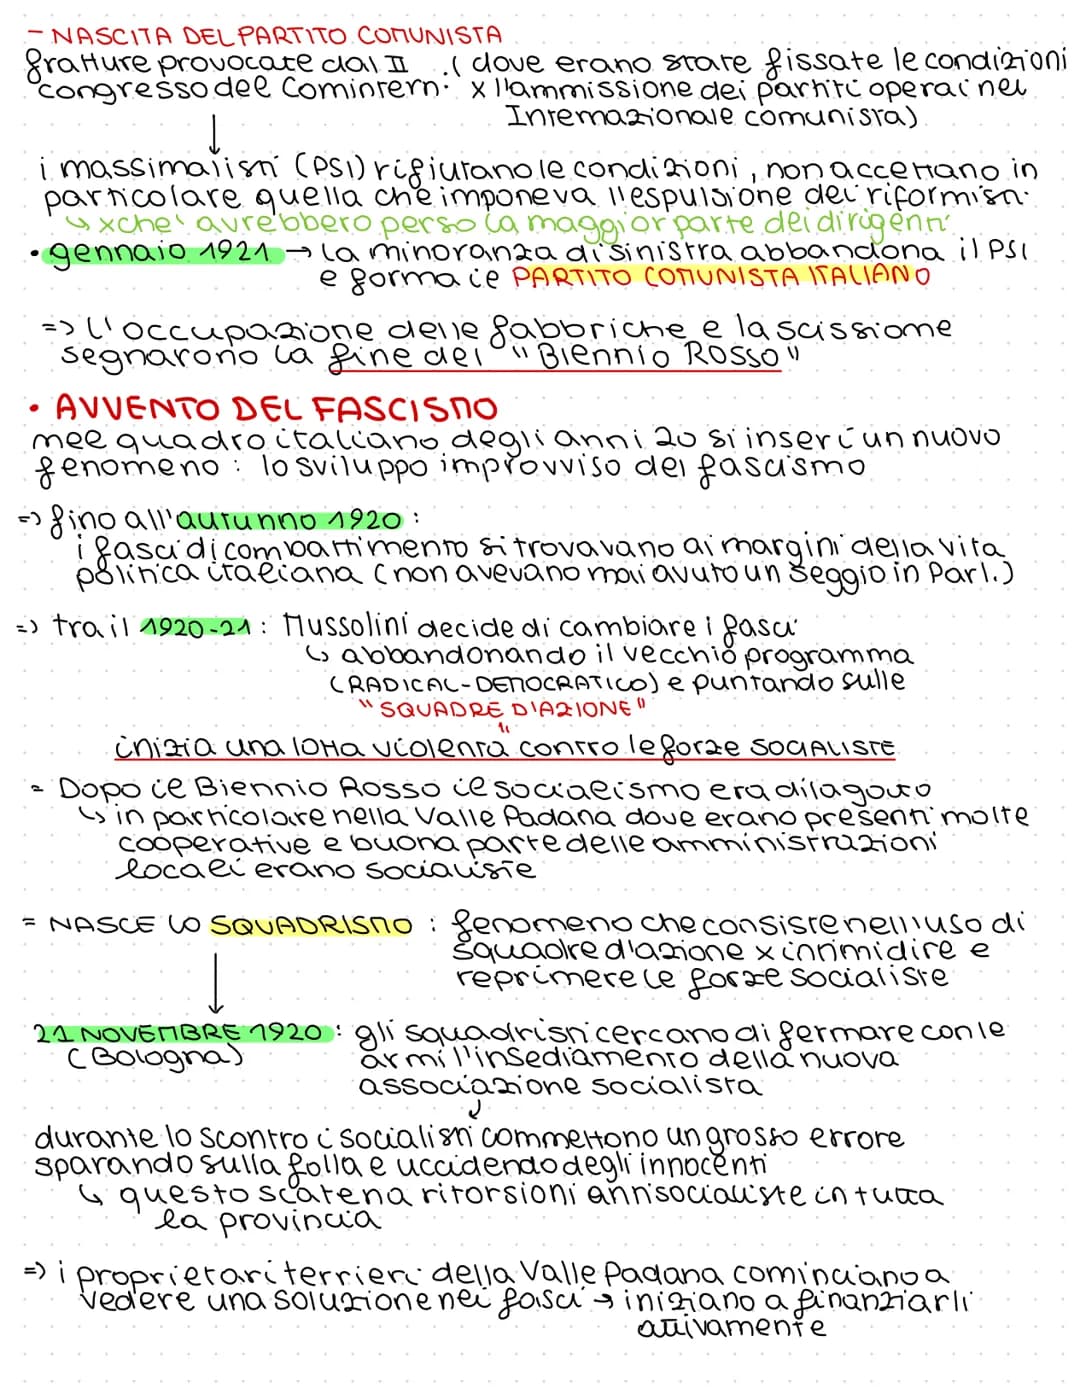 - NASCITA DEL PARTITO COMUNISTA
fratture provocate dal II (dove erano state fissate le condizioni
congresso del Comintern. x l'ammissione dei partiti operai nel
Internazionale comunista)
↓
i massimalisti (PSI) rifiutano le condizioni, non accettano in
particolare quella che imponeva l'espulsione dei riformisti.
↳ xche' avrebbero perso la maggior parte dei dirigenti
• gennaio 1921 → la minoranza di sinistra abbandona il PSI
e forma il PARTITO COMUNISTA ITALIANO
=> L'occupazione delle fabbriche e la scissiome
segnarono la fine del "BIENNIO ROSSO"
• AVVENTO DEL FASCISMO
mel quadro italiano degli anni 20 si inserì un nuovo
fenomeno: lo sviluppo improvviso del fascismo
=> fino all'autunno 1920:
i fasci di combattimento si trovavano ai margini della vita
politica italiana (non avevano mai avuto un seggio in Parl.)
=> tra il 1920-21: Mussolini decide di cambiare i fasci
↳ abbandonando il vecchio programma
(RADICAL-DEMOCRATICO) e puntando sulle
"SQUADRE D'AZIONE"
"
inizia una lotta violenta contro le forze SOCIALISTE
= Dopo il Biennio Rosso il socialismo era dilagato
↳ in particolare nella Valle Padana dove erano presenti molte
cooperative e buona parte delle amministrazioni
locali erano socialiste
= NASCE LO SQUADRISMO: fenomeno che consiste nell'uso di
squadre d'azione x intimidire e
reprimere le forze socialiste
↓
21 NOVEMBRE 1920: gli squadristi cercano di fermare con le
(Bologna) armi l'insediamento della nuova
associazione socialista
↓
durante lo scontro i socialisti commettono un grosso errore
sparando sulla folla e uccidendo degli innocenti
↳ questo scatena ritorsioni antisocialiste in tutta
la provincia
=> i proprietari terrieri della Valle Padana cominciano a
vedere una soluzione nei fasci → iniziano a finanziarli
attivamente